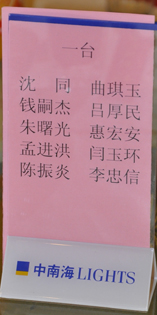 一台
沈 同 曲琪玉
钱嗣杰 吕厚民
朱曙光 惠宏安
孟进洪 闫玉环
陈振炎 李忠信
中南海 LIGHTS